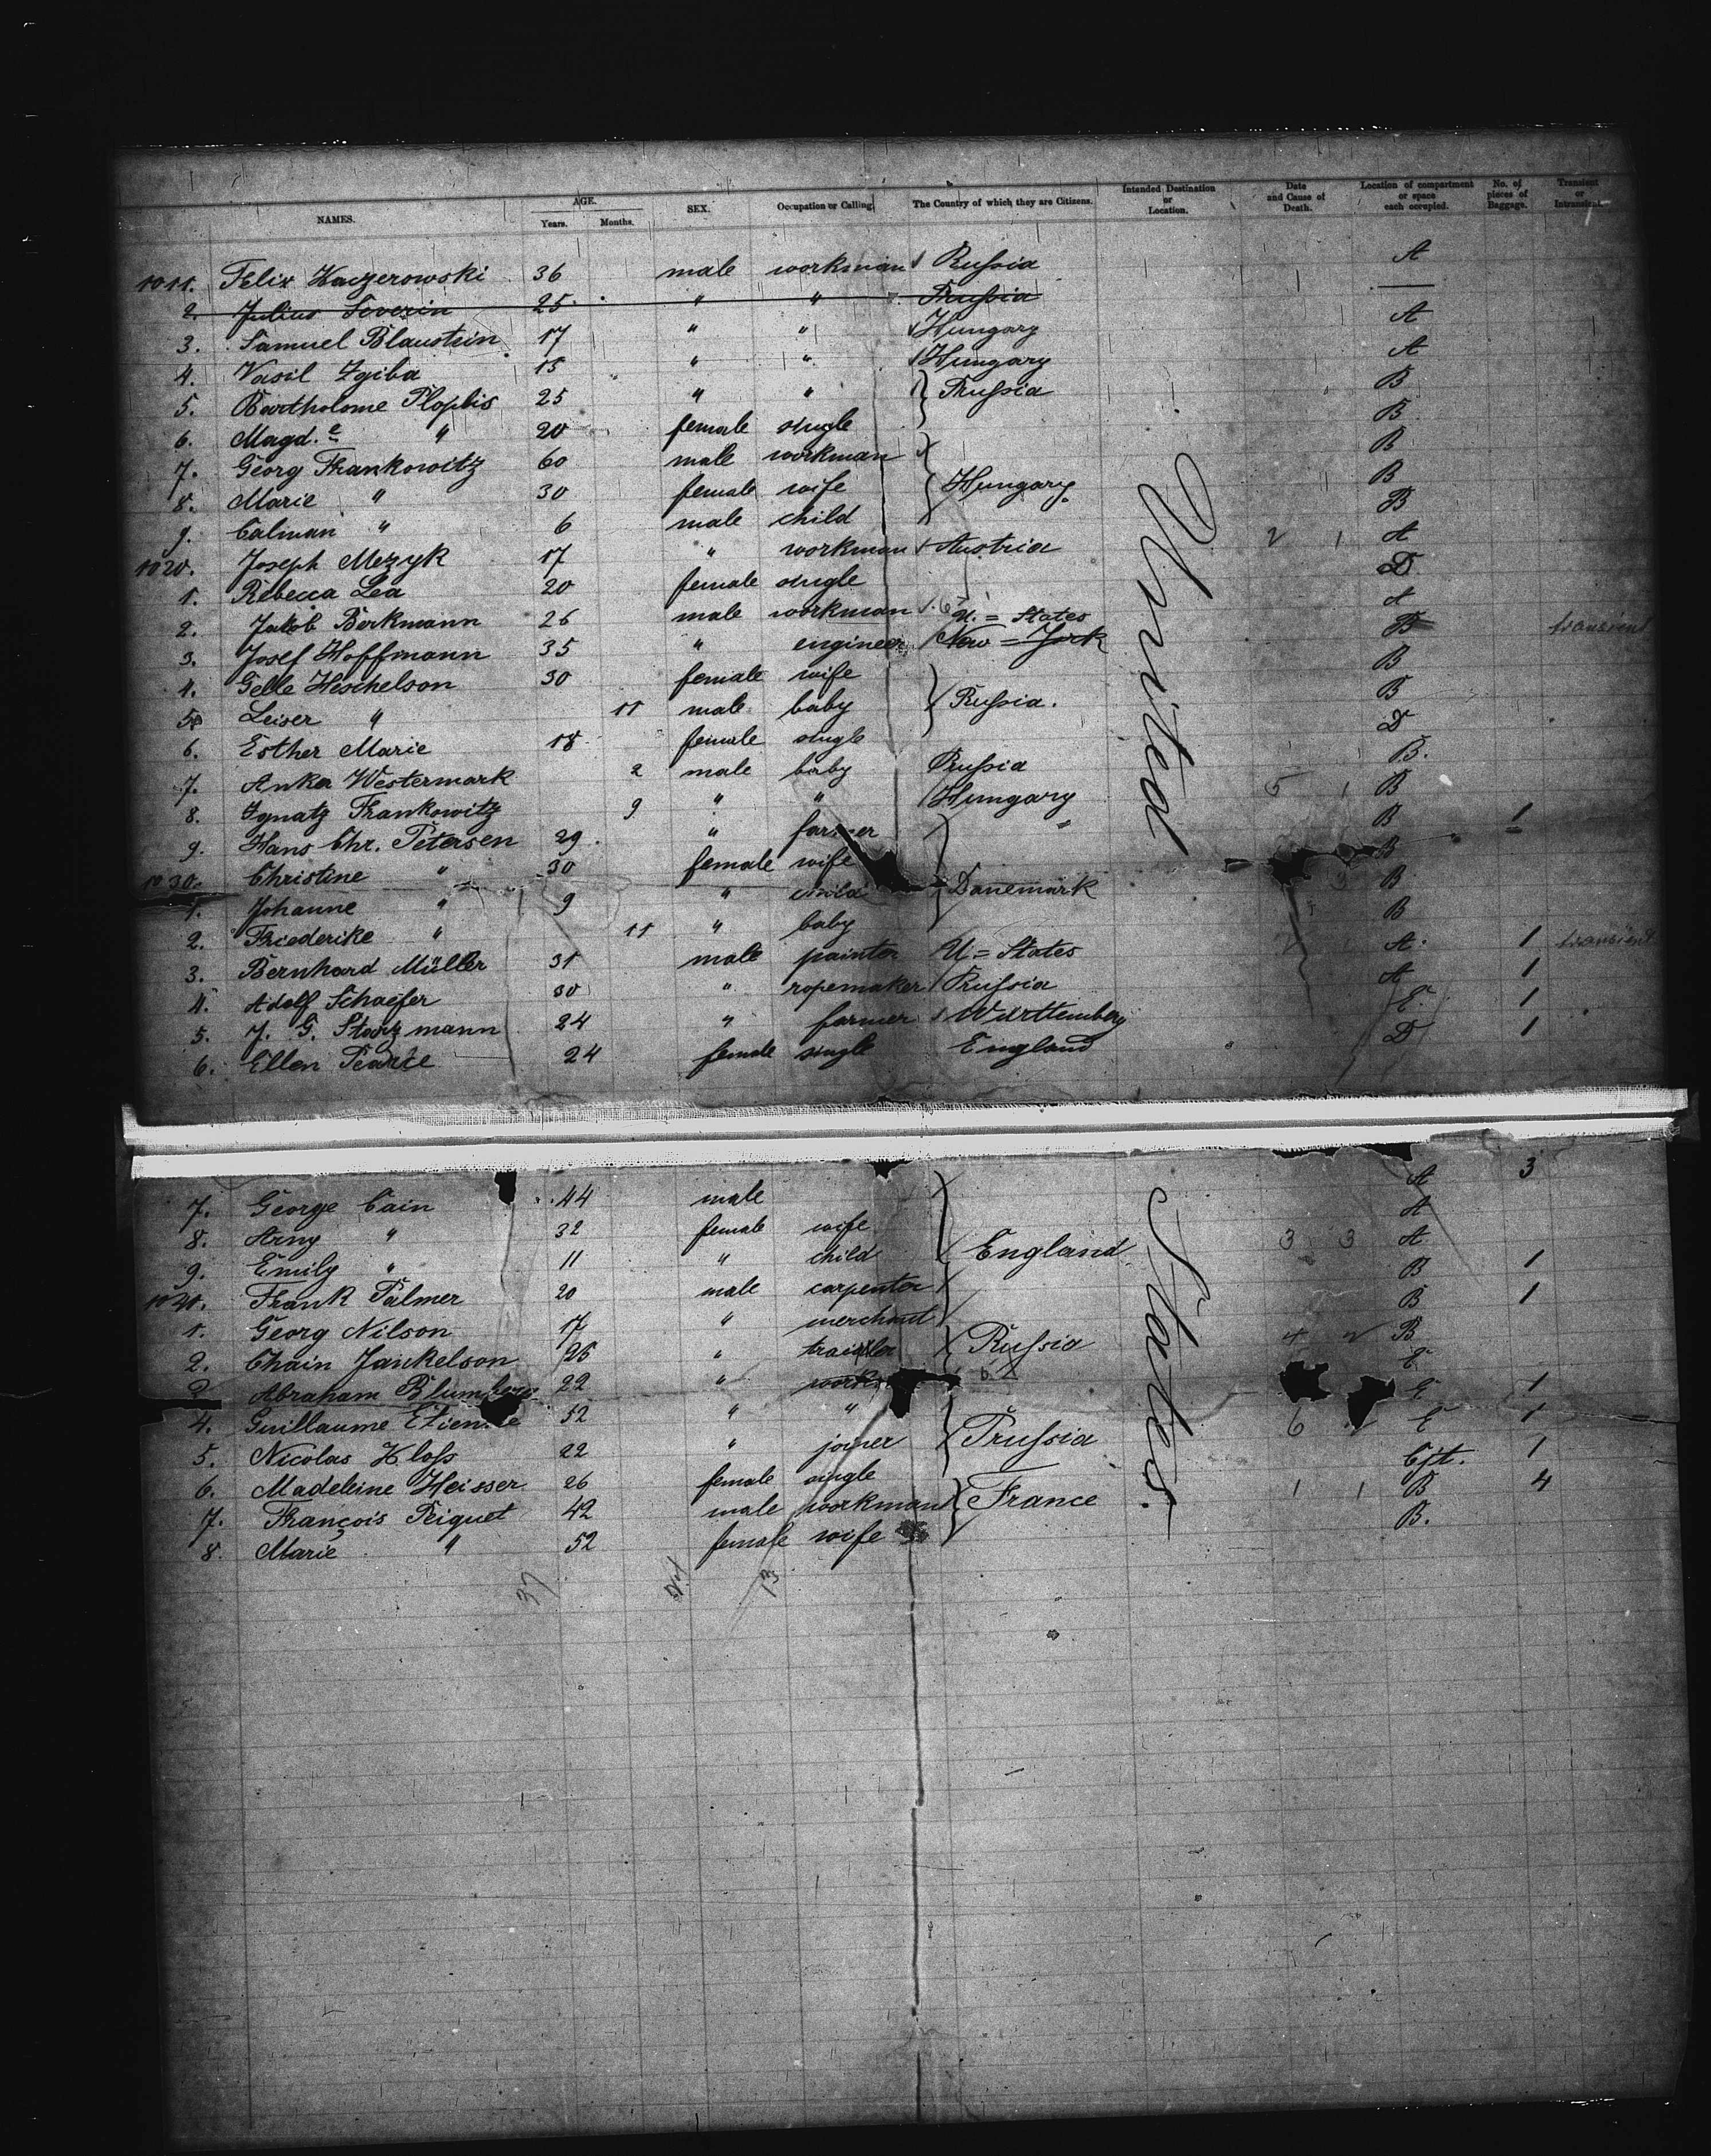 NAMES. AGE. Years. Months. SEX. Occupation or Calling. The Country of which they are Citizens. Intended Destination or Location. Date and Cause of Death. Location of compartment or space each occupied. No. of pieces of Baggage. Transient or Intransient.
1011. Felix Kaczerowski 36 male workman Russia A
2. Julius Severin 25 " " Prussia —
3. Samuel Blaustein 17 " " Hungary A
4. Vasil Zgiba 15 " " Hungary A
5. Bartholome Plophis 25 " " Prussia B
6. Magd.e " 20 female single B
7. Georg Frankowitz 60 male workman B
8. Marie " 30 female wife Hungary B
9. Calman " 6 male child B
1020. Joseph Mezyk 17 " workman Austria 2 1 A
1. Rebecca Lea 20 female single D
2. Jakob Berkmann 26 male workman U. = States A
3. Josef Hoffmann 35 " engineer New = York B transient
4. Gelle Heschelson 30 female wife B
5. Leiser " 11 male baby Russia. B
6. Esther Marie 18 female single D
7. Anka Westermark 2 male baby Russia B.
8. Ignatz Frankowitz 9 " " Hungary 5 1 B
9. Hans Chr. Petersen 29 " farmer B 1
1030. Christine " 30 female wife B
1. Johanne " 9 " child Danemark 3 B
2. Friederike " 11 " baby B
3. Bernhard Müller 31 male painter U = States A. 1 transient
4. Adolf Schaefer 30 " ropemaker Russia A 1
5. J. G. Startzmann 24 " farmer Württemberg E. 1
6. Ellen Pearce 24 female single England D 1
United States.
7. George Cain 44 male A 3
8. Amy " 32 female wife A
9. Emily " 11 " child England 3 3 A
1040. Frank Palmer 20 male carpenter B 1
1. Georg Nilson 17 " merchant B 1
2. Chain Jankelson 26 " Russia 4 2 B
3. Abraham Blumberg 22 " E
4. Guillaume Etienne 52 " " E 1
5. Nicolas Kloss 22 " joiner Prussia 6 E 1
6. Madeleine Heisser 26 female single Cjt. 1
7. François Piquet 42 male workman France 1 1 B 4
8. Marie " 52 female wife B.
37 24 13